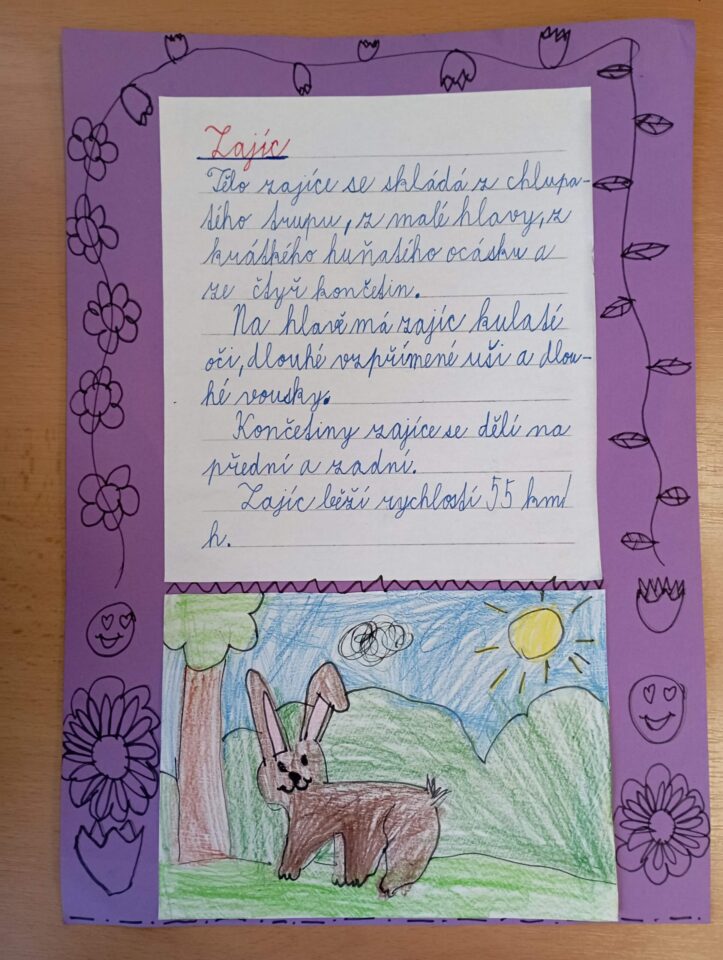 Zajíc
Tělo zajíce se skládá z chlupa-
tého trupu, z malé hlavy, z
krátkého huňatého ocásku a
ze čtyř končetin.
Na hlavě má zajíc kulaté
oči, dlouhé vzpřímené uši a dlou-
hé vousky.
Končetiny zajíce se dělí na
přední a zadní.
Zajíc běží rychlostí 55 km/
h.